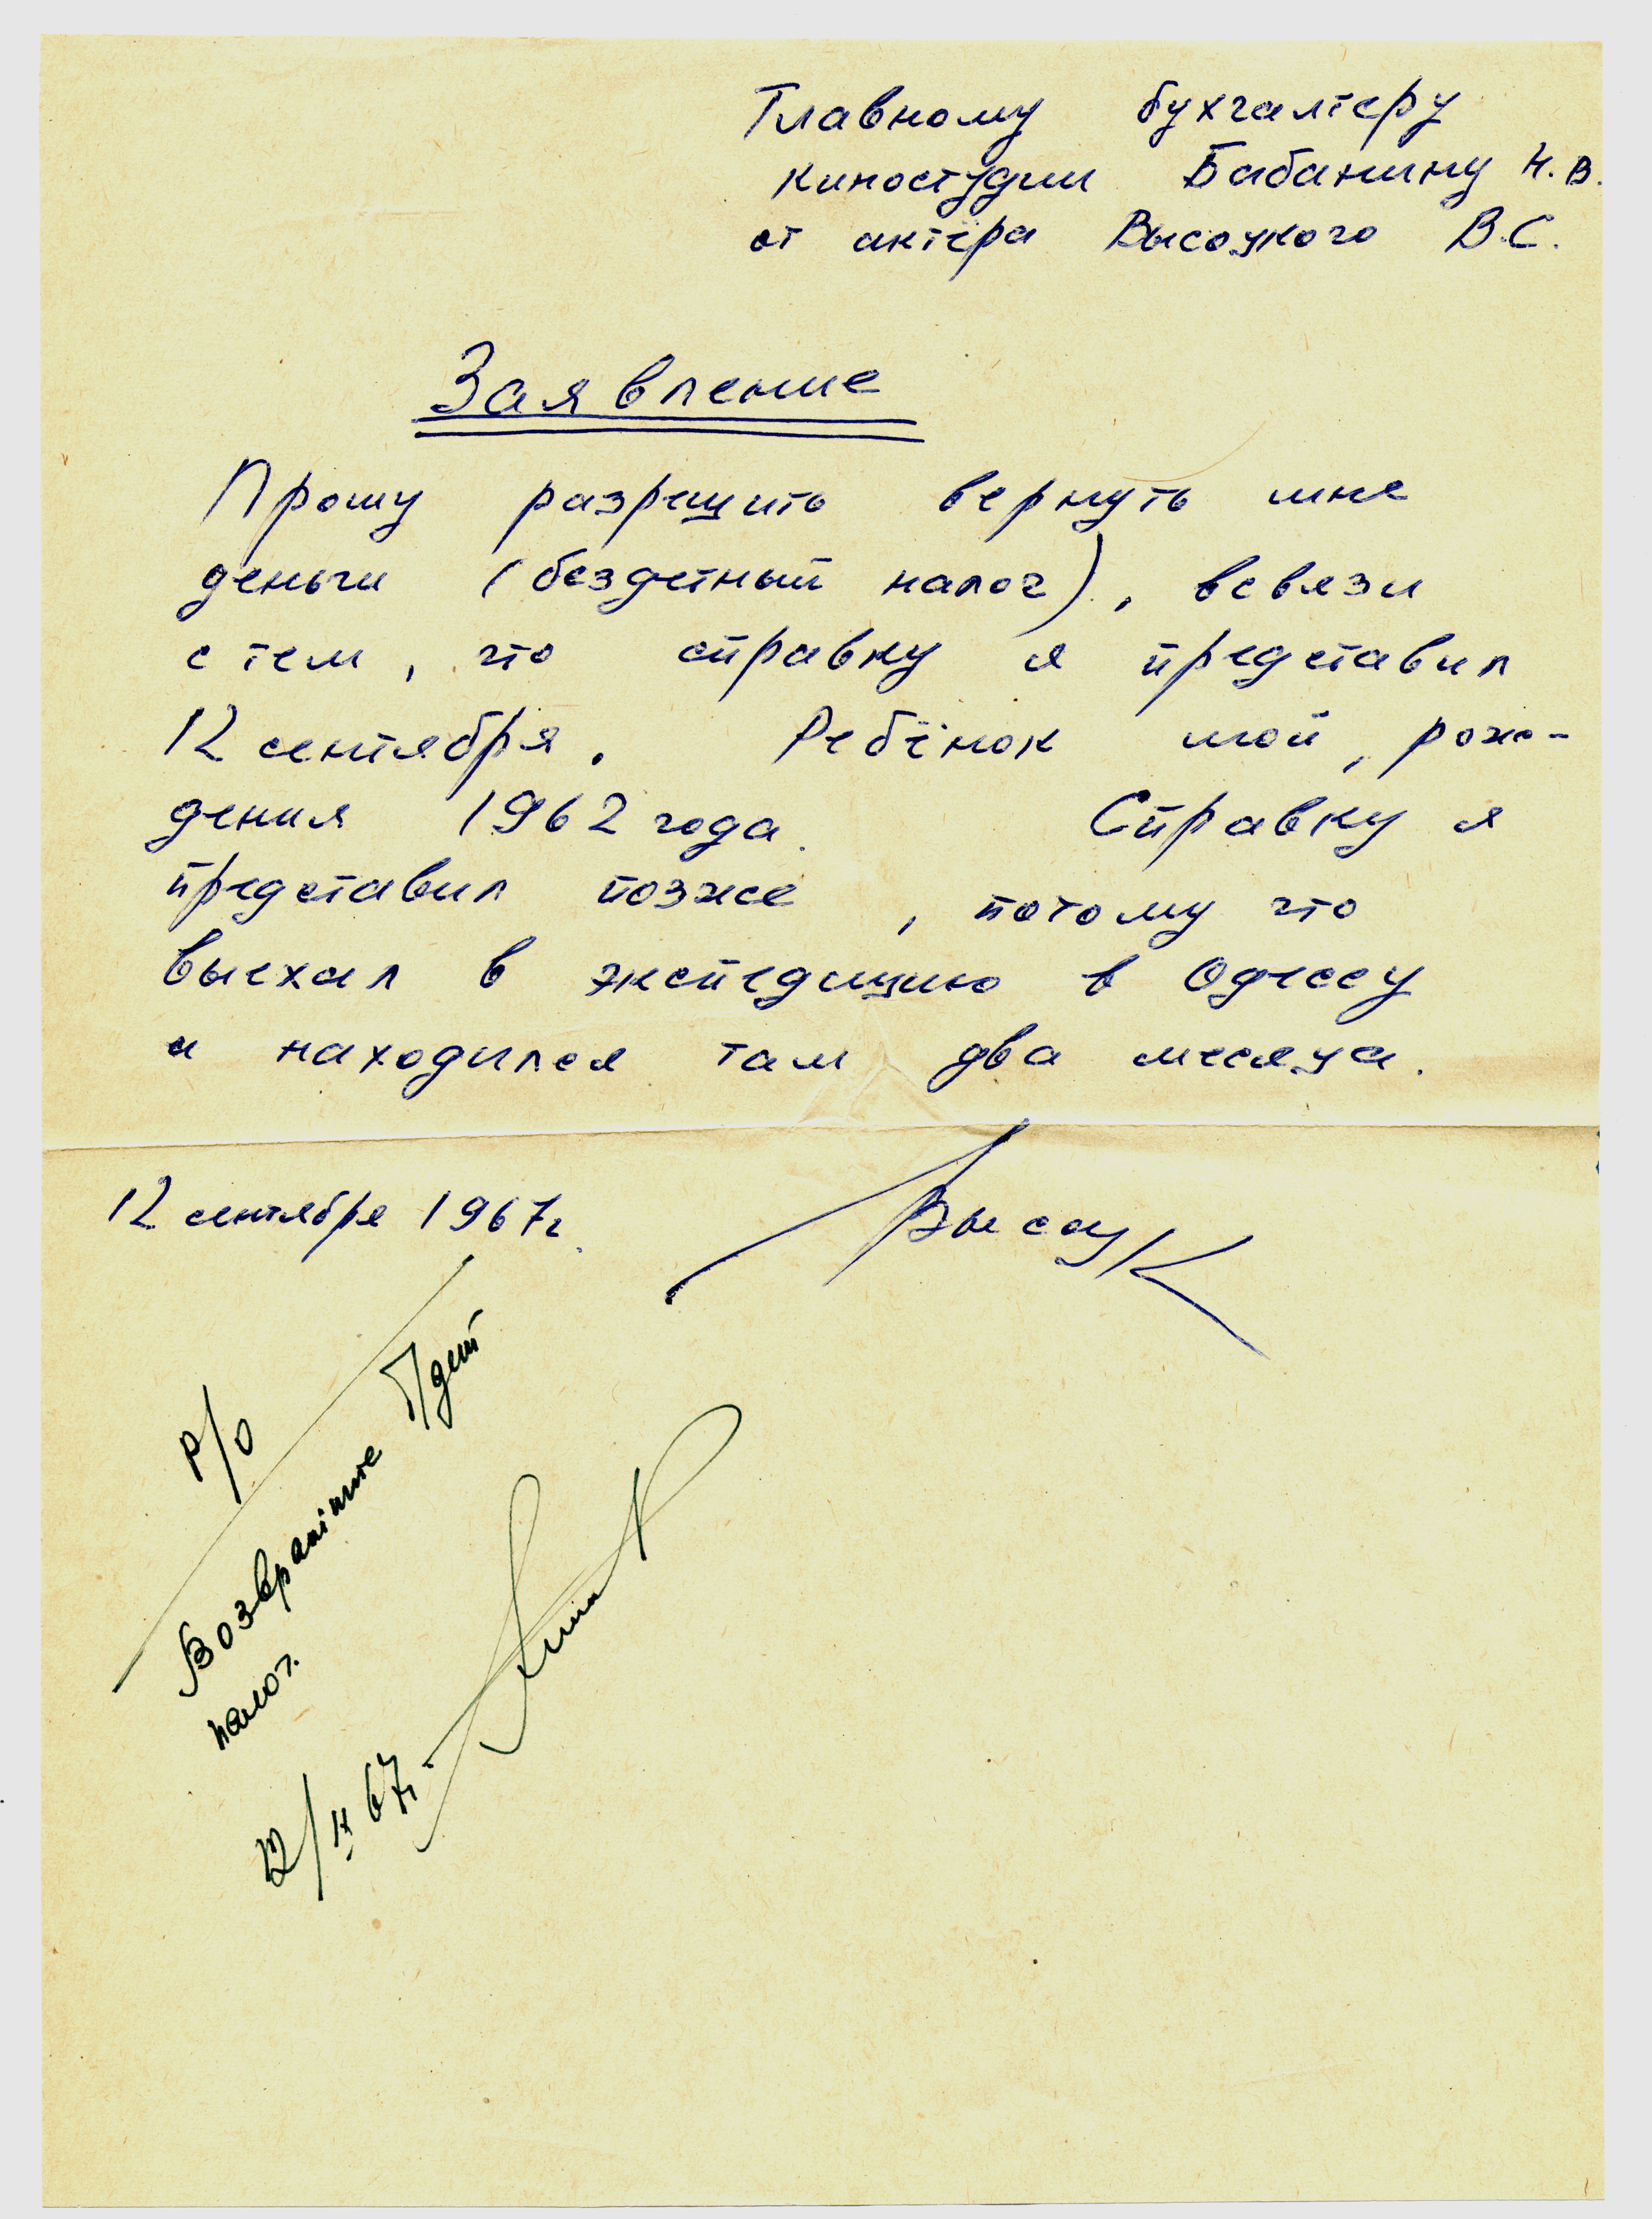 Главному бухгалтеру
киностудии Бабанину Н.В.
от актёра Высоцкого В.С.
Заявление
Прошу разрешить вернуть мне
деньги (бездетный налог), всвязи
с тем, что справку я представил
12 сентября. Ребёнок мой, рож-
дения 1962 года. Справку я
представил позже, потому что
выехал в экспедицию в Одессу
и находился там два месяца.
12 сентября 1967г.
Высоцк
Р/О
Возвратите
налог.
12/IX 67г.